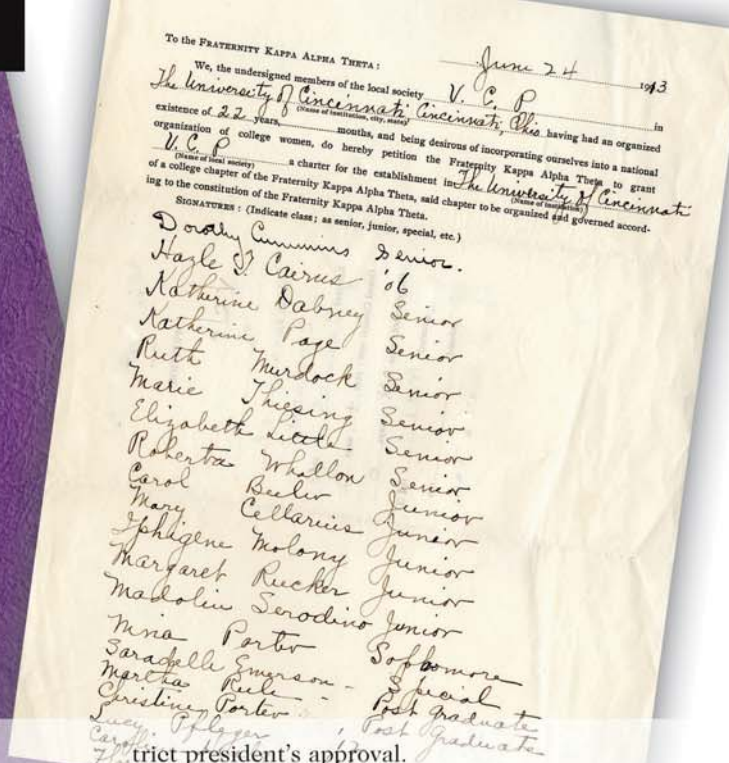 To the FRATERNITY KAPPA ALPHA THETA:
June 24 1913
We, the undersigned members of the local society V. C. P in
The University of Cincinnati, Cincinnati, Ohio having had an organized
(Name of institution, city, state)
existence of 22 years, months, and being desirous of incorporating ourselves into a national
organization of college women, do hereby petition the Fraternity Kappa Alpha Theta to grant
V. C. P a charter for the establishment in The University of Cincinnati
(Name of local society) (Name of institution)
of a college chapter of the Fraternity Kappa Alpha Theta, said chapter to be organized and governed accord-
ing to the constitution of the Fraternity Kappa Alpha Theta.
SIGNATURES: (Indicate class; as senior, junior, special, etc.)
Dorothy Cummins Senior.
Hazle Cairns '06
Katherine Dabney Senior
Katherine Page Senior
Ruth Murdock Senior
Marie Thiesing Senior
Elizabeth Little Senior
Roberta Whallon Senior
Carol Junior
Mary Cellarius Junior
Iphigene Molony Junior
Margaret Rucker Junior
Madolin Serodino Junior
Nina Porter Sophomore
Saradelle Emerson - Special
Martha Rule - Post Graduate
Christine Porter , Post Graduate
Lucy Pfleger
trict president's approval.